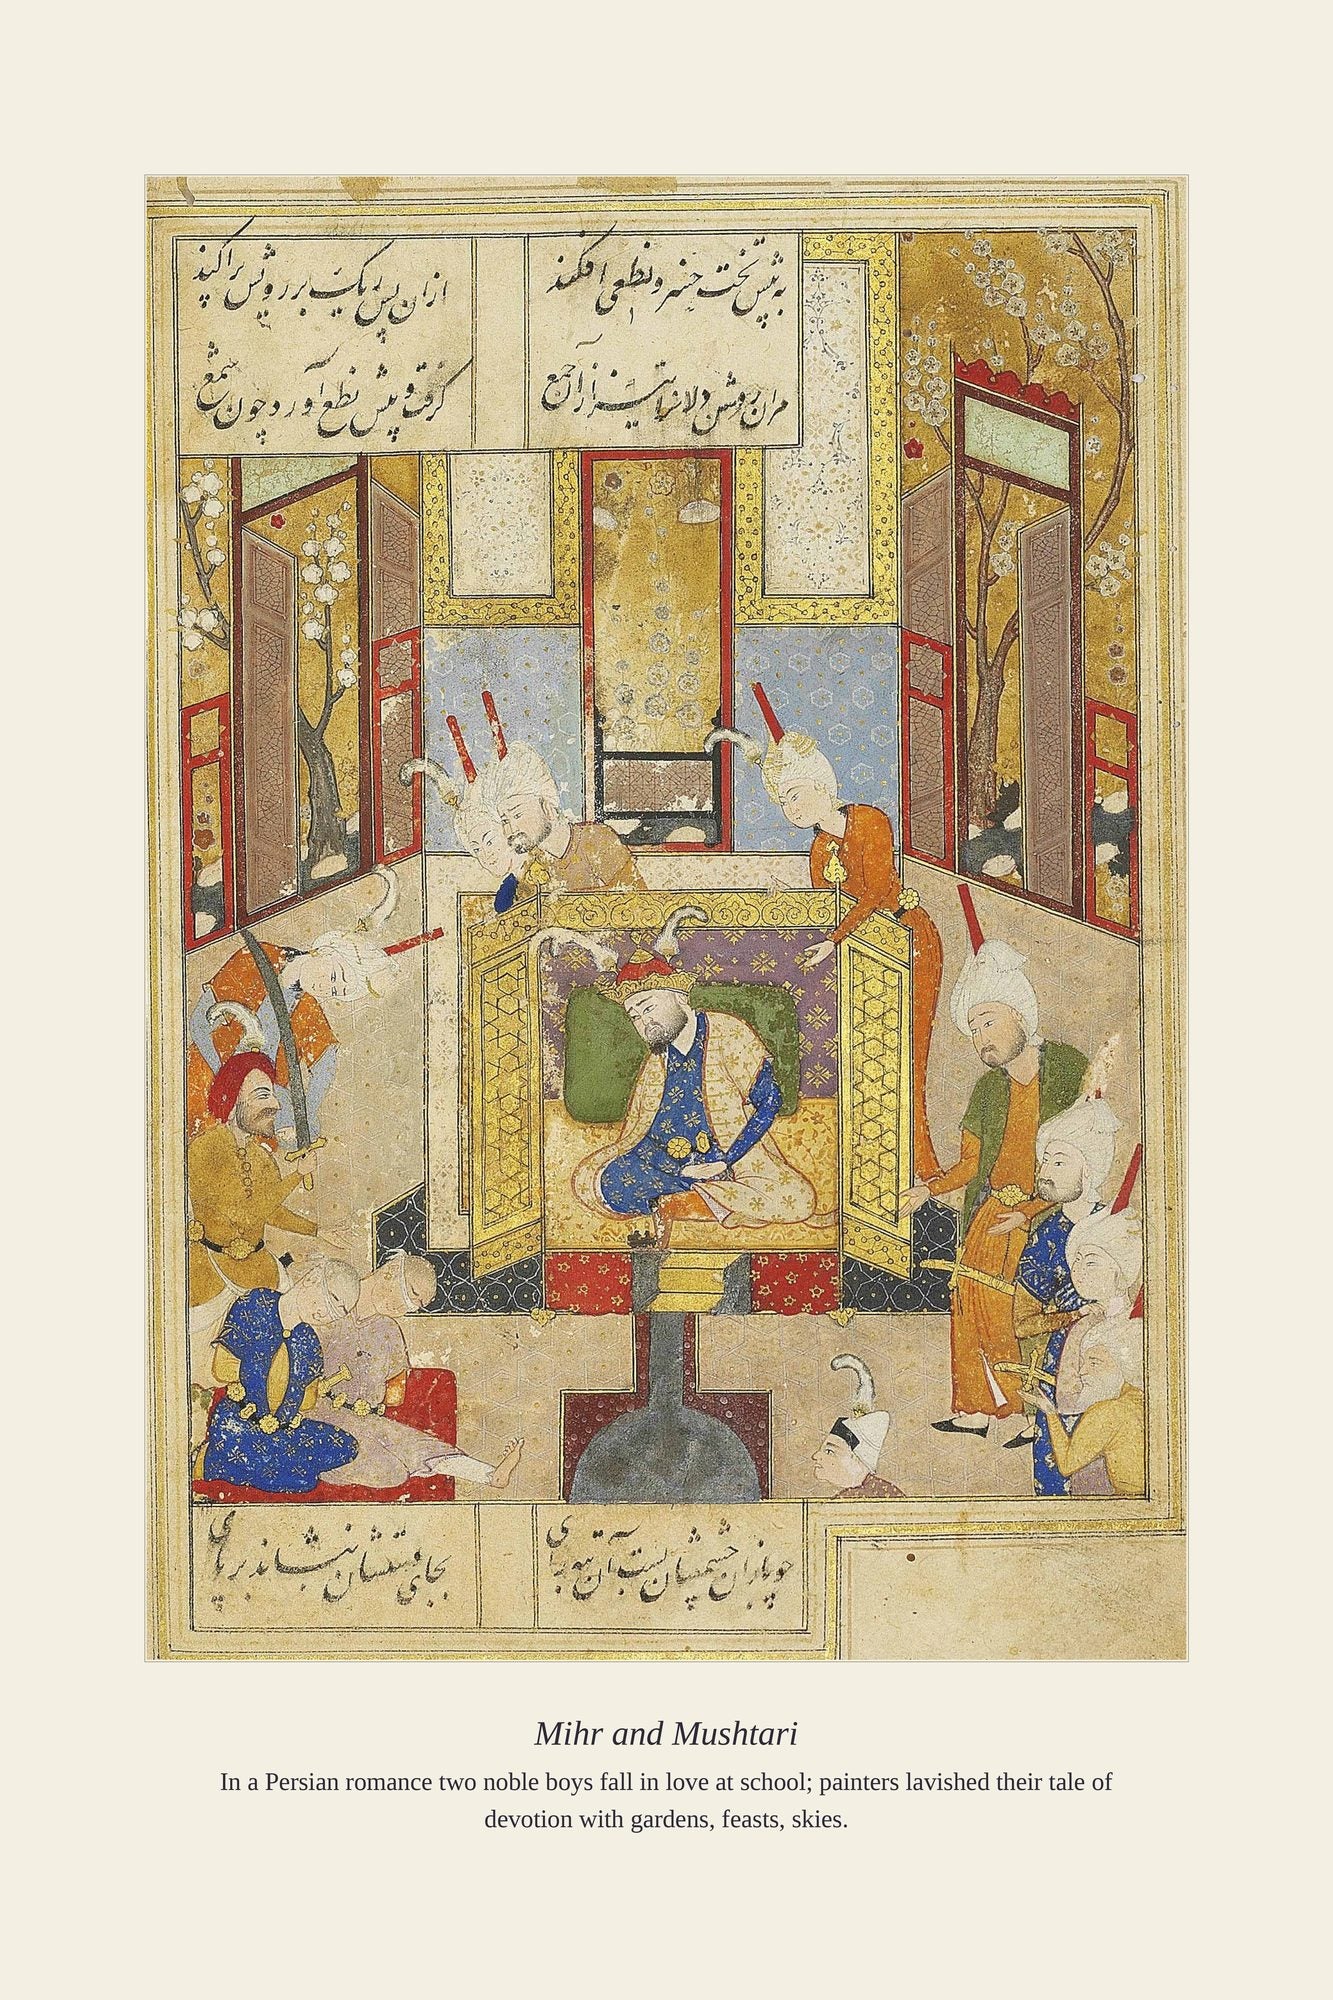 به پیش تخت خسرو نطعی افکند ازان پس ریک بر رویش پراکند
مران روشن دلانرا نیز ازان جمع گرفت و پیش نطع آورد چون شمع
چو بازان چشمشان بست آن تبه رای بجای بنشاند بر پای
Mihr and Mushtari
In a Persian romance two noble boys fall in love at school; painters lavished their tale of
devotion with gardens, feasts, skies.